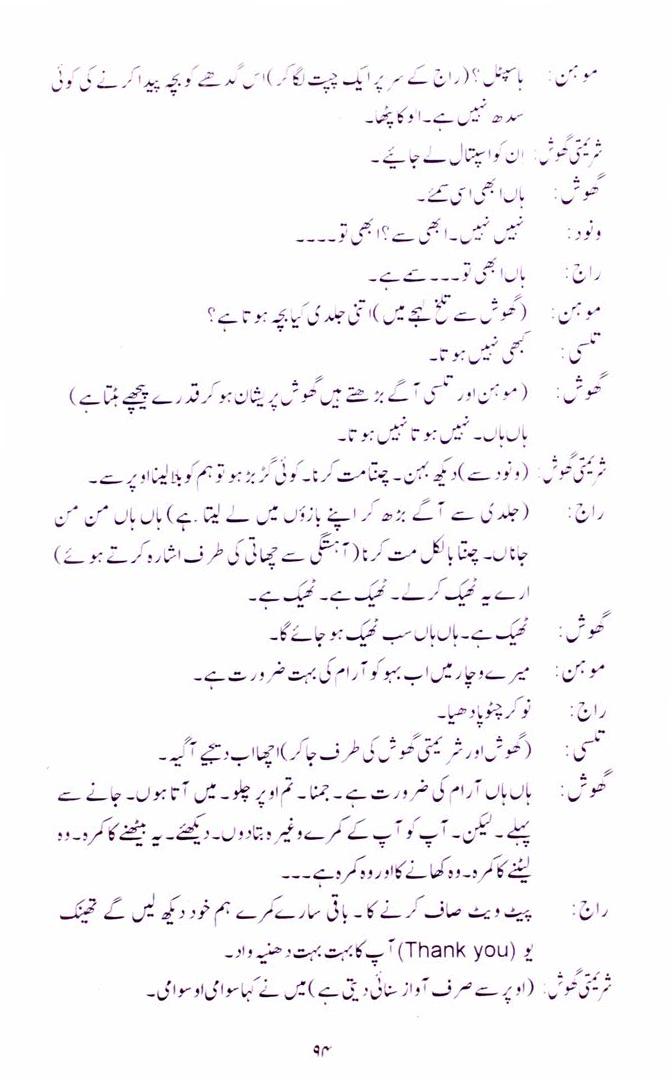 موہن: ہاسپٹل؟ (راج کے سر پر ایک چپت لگا کر) اس گدھے کو بچہ پیدا کرنے کی کوئی
سدھ نہیں ہے۔ الو کا پٹھا۔
شریمتی گھوش: ان کو اسپتال لے جائیے۔
گھوش: ہاں ابھی اسی سمئے۔
ونود: نہیں نہیں۔ ابھی سے؟ ابھی تو۔۔۔۔
راج: ہاں ابھی تو۔۔۔ سمے ہے۔
موہن: (گھوش سے تلخ لہجے میں) اتنی جلدی کیا بچہ ہوتا ہے؟
تلسی: کبھی نہیں ہوتا۔
گھوش: (موہن اور تلسی آگے بڑھتے ہیں گھوش پریشان ہو کر قدرے پیچھے ہٹتا ہے)
ہاں ہاں۔ نہیں ہوتا نہیں ہوتا۔
شریمتی گھوش: (ونود سے) دیکھ بہن۔ چنتا مت کرنا۔ کوئی گڑبڑ ہو تو ہم کو بلا لینا اوپر سے۔
راج: (جلدی سے آگے بڑھ کر اپنے بازوؤں میں لے لیتا ہے) ہاں ہاں من من
جاناں۔ چنتا بالکل مت کرنا (آہستگی سے چھاتی کی طرف اشارہ کرتے ہوئے)
ارے یہ ٹھیک کر لے۔ ٹھیک ہے۔ ٹھیک ہے۔
گھوش: ٹھیک ہے۔ ہاں ہاں سب ٹھیک ہو جائے گا۔
موہن: میرے وچار میں اب بہو کو آرام کی بہت ضرورت ہے۔
راج: نوکر چٹوپادھیا۔
تلسی: (گھوش اور شریمتی گھوش کی طرف جا کر) اچھا اب دیجیے آگیہ۔
گھوش: ہاں ہاں آرام کی ضرورت ہے۔ جمنا۔ تم اوپر چلو۔ میں آتا ہوں۔ جانے سے
پہلے۔ لیکن۔ آپ کو آپ کے کمرے وغیرہ بتا دوں۔ دیکھئے۔ یہ بیٹھنے کا کمرہ۔ وہ
لیٹنے کا کمرہ۔ وہ کھانے کا اور وہ کمرہ ہے۔۔۔
راج: پیٹ ویٹ صاف کرنے کا۔ باقی سارے کمرے ہم خود دیکھ لیں گے تھینک
یو (Thank you) آپ کا بہت بہت دھنیہ واد۔
شریمتی گھوش: (اوپر سے صرف آواز سنائی دیتی ہے) میں نے کہا سوامی او سوامی۔
۹۴